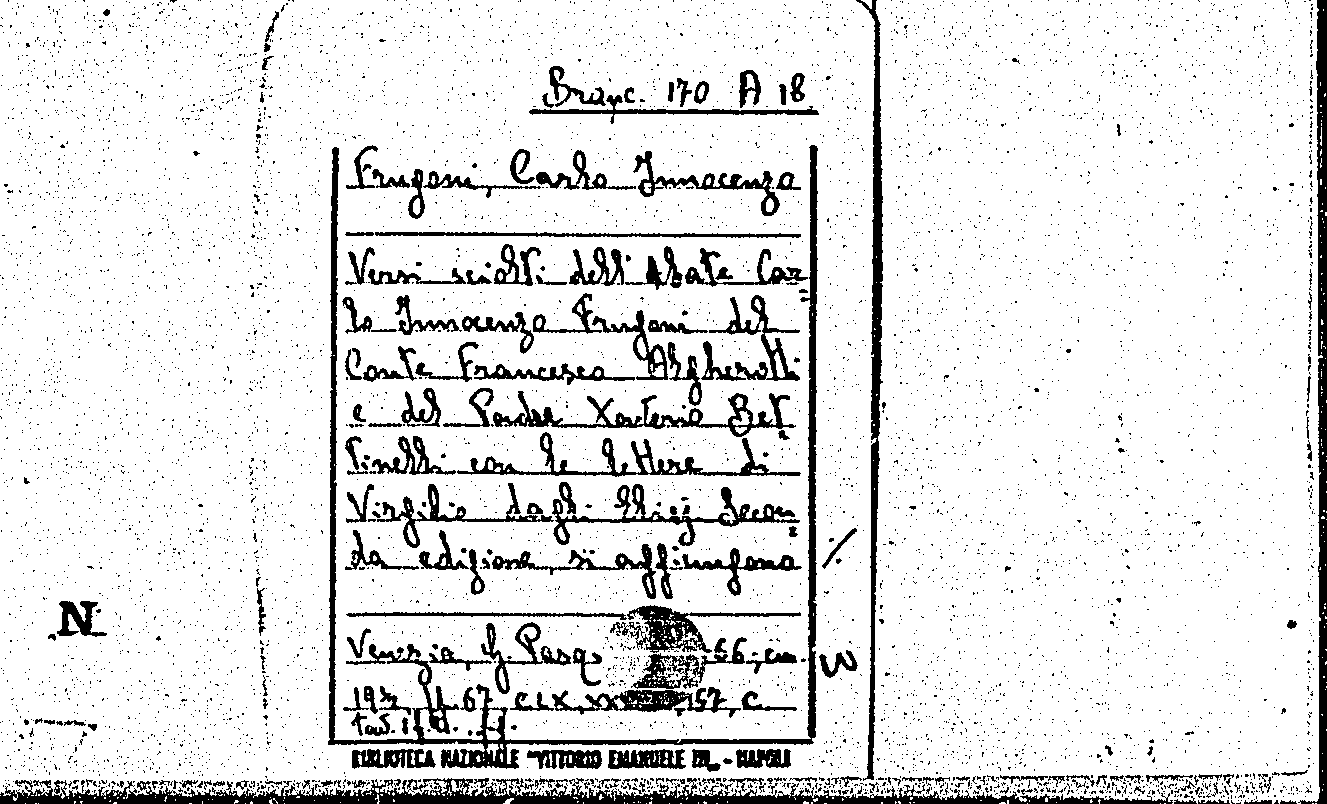 Branc. 170 A 18
Frugoni, Carlo Innocenzo
Versi sciolti dell'Abate Car=
lo Innocenzo Frugoni del
Conte Francesco Algherotti
e del Padre Xaverio Bet=
tinelli con le lettere di
Virgilio dagli Elisj Secon=
da edizione, si aggiungono
Venezia, G. Pasq 66; cm.
19½ 67 157, C.
tav.
N
BIBLIOTECA NAZIONALE "VITTORIO EMANUELE III" - NAPOLI